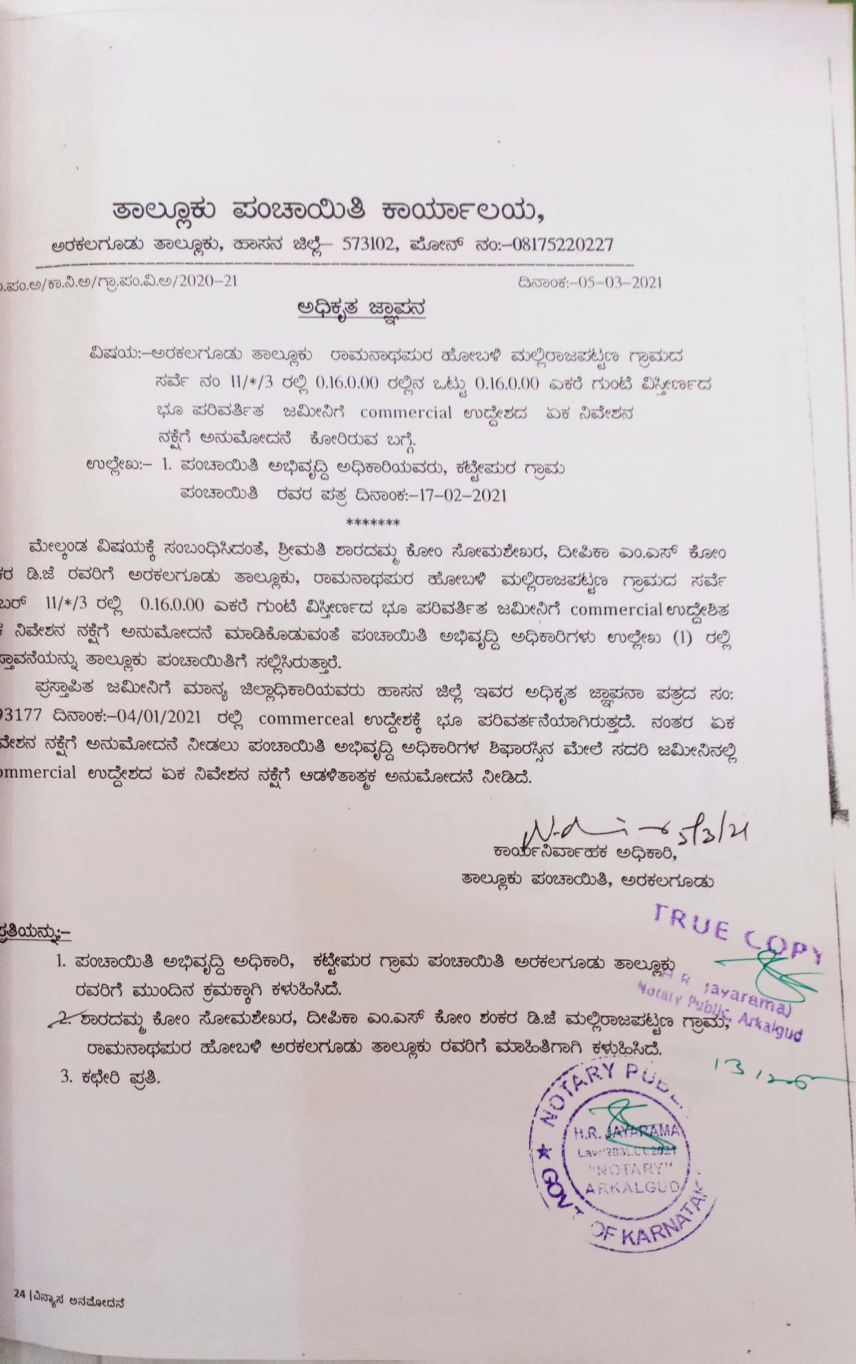 ತಾಲ್ಲೂಕು ಪಂಚಾಯಿತಿ ಕಾರ್ಯಾಲಯ,
ಅರಕಲಗೂಡು ತಾಲ್ಲೂಕು, ಹಾಸನ ಜಿಲ್ಲೆ– 573102, ಪೋನ್ ನಂ:–08175220227
.ಪಂ.ಅ/ಕಾ.ನಿ.ಅ/ಗ್ರಾ.ಪಂ.ವಿ.ಅ/2020–21 ದಿನಾಂಕ:–05–03–2021
ಅಧಿಕೃತ ಜ್ಞಾಪನ
ವಿಷಯ:–ಅರಕಲಗೂಡು ತಾಲ್ಲೂಕು ರಾಮನಾಥಪುರ ಹೋಬಳಿ ಮಲ್ಲಿರಾಜಪಟ್ಟಣ ಗ್ರಾಮದ
ಸರ್ವೆ ನಂ 11/*/3 ರಲ್ಲಿ 0.16.0.00 ರಲ್ಲಿನ ಒಟ್ಟು 0.16.0.00 ಎಕರೆ ಗುಂಟೆ ವಿಸ್ತೀರ್ಣದ
ಭೂ ಪರಿವರ್ತಿತ ಜಮೀನಿಗೆ commercial ಉದ್ದೇಶದ ಏಕ ನಿವೇಶನ
ನಕ್ಷೆಗೆ ಅನುಮೋದನೆ ಕೋರಿರುವ ಬಗ್ಗೆ.
ಉಲ್ಲೇಖ:– 1. ಪಂಚಾಯಿತಿ ಅಭಿವೃದ್ದಿ ಅಧಿಕಾರಿಯವರು, ಕಟ್ಟೇಪುರ ಗ್ರಾಮ
ಪಂಚಾಯಿತಿ ರವರ ಪತ್ರ ದಿನಾಂಕ:–17–02–2021
*******
ಮೇಲ್ಕಂಡ ವಿಷಯಕ್ಕೆ ಸಂಬಂಧಿಸಿದಂತೆ, ಶ್ರೀಮತಿ ಶಾರದಮ್ಮ ಕೋಂ ಸೋಮಶೇಖರ, ದೀಪಿಕಾ ಎಂ.ಎಸ್ ಕೋಂ
ಕರ ಡಿ.ಜೆ ರವರಿಗೆ ಅರಕಲಗೂಡು ತಾಲ್ಲೂಕು, ರಾಮನಾಥಪುರ ಹೋಬಳಿ ಮಲ್ಲಿರಾಜಪಟ್ಟಣ ಗ್ರಾಮದ ಸರ್ವೆ
ಬರ್ 11/*/3 ರಲ್ಲಿ 0.16.0.00 ಎಕರೆ ಗುಂಟೆ ವಿಸ್ತೀರ್ಣದ ಭೂ ಪರಿವರ್ತಿತ ಜಮೀನಿಗೆ commercial ಉದ್ದೇಶಿತ
ನಿವೇಶನ ನಕ್ಷೆಗೆ ಅನುಮೋದನೆ ಮಾಡಿಕೊಡುವಂತೆ ಪಂಚಾಯಿತಿ ಅಭಿವೃದ್ದಿ ಅಧಿಕಾರಿಗಳು ಉಲ್ಲೇಖ (1) ರಲ್ಲಿ
ಸ್ತಾವನೆಯನ್ನು ತಾಲ್ಲೂಕು ಪಂಚಾಯಿತಿಗೆ ಸಲ್ಲಿಸಿರುತ್ತಾರೆ.
ಪ್ರಸ್ತಾಪಿತ ಜಮೀನಿಗೆ ಮಾನ್ಯ ಜಿಲ್ಲಾಧಿಕಾರಿಯವರು ಹಾಸನ ಜಿಲ್ಲೆ ಇವರ ಅಧಿಕೃತ ಜ್ಞಾಪನಾ ಪತ್ರದ ಸಂ:
93177 ದಿನಾಂಕ:–04/01/2021 ರಲ್ಲಿ commerceal ಉದ್ದೇಶಕ್ಕೆ ಭೂ ಪರಿವರ್ತನೆಯಾಗಿರುತ್ತದೆ. ನಂತರ ಏಕ
ವೇಶನ ನಕ್ಷೆಗೆ ಅನುಮೋದನೆ ನೀಡಲು ಪಂಚಾಯಿತಿ ಅಭಿವೃದ್ದಿ ಅಧಿಕಾರಿಗಳ ಶಿಫಾರಸ್ಸಿನ ಮೇಲೆ ಸದರಿ ಜಮೀನಿನಲ್ಲಿ
ommercial ಉದ್ದೇಶದ ಏಕ ನಿವೇಶನ ನಕ್ಷೆಗೆ ಆಡಳಿತಾತ್ಮಕ ಅನುಮೋದನೆ ನೀಡಿದೆ.
5/3/21
ಕಾರ್ಯನಿರ್ವಾಹಕ ಅಧಿಕಾರಿ,
ತಾಲ್ಲೂಕು ಪಂಚಾಯಿತಿ, ಅರಕಲಗೂಡು
TRUE COPY
ಪ್ರತಿಯನ್ನು:–
1. ಪಂಚಾಯಿತಿ ಅಭಿವೃದ್ದಿ ಅಧಿಕಾರಿ, ಕಟ್ಟೇಪುರ ಗ್ರಾಮ ಪಂಚಾಯಿತಿ ಅರಕಲಗೂಡು ತಾಲ್ಲೂಕು
ರವರಿಗೆ ಮುಂದಿನ ಕ್ರಮಕ್ಕಾಗಿ ಕಳುಹಿಸಿದೆ.
R. Jayarama)
Notary Public, Arkalgud
2. ಶಾರದಮ್ಮ ಕೋಂ ಸೋಮಶೇಖರ, ದೀಪಿಕಾ ಎಂ.ಎಸ್ ಕೋಂ ಶಂಕರ ಡಿ.ಜೆ ಮಲ್ಲಿರಾಜಪಟ್ಟಣ ಗ್ರಾಮ,
ರಾಮನಾಥಪುರ ಹೋಬಳಿ ಅರಕಲಗೂಡು ತಾಲ್ಲೂಕು ರವರಿಗೆ ಮಾಹಿತಿಗಾಗಿ ಕಳುಹಿಸಿದೆ.
3. ಕಛೇರಿ ಪ್ರತಿ.
NOTARY PUBL
H.R. JAYARAMA
"NOTARY"
ARKALGUD
GOVT OF KARNATAK
24 |ವಿನ್ಯಾಸ ಅನಮೋದನೆ